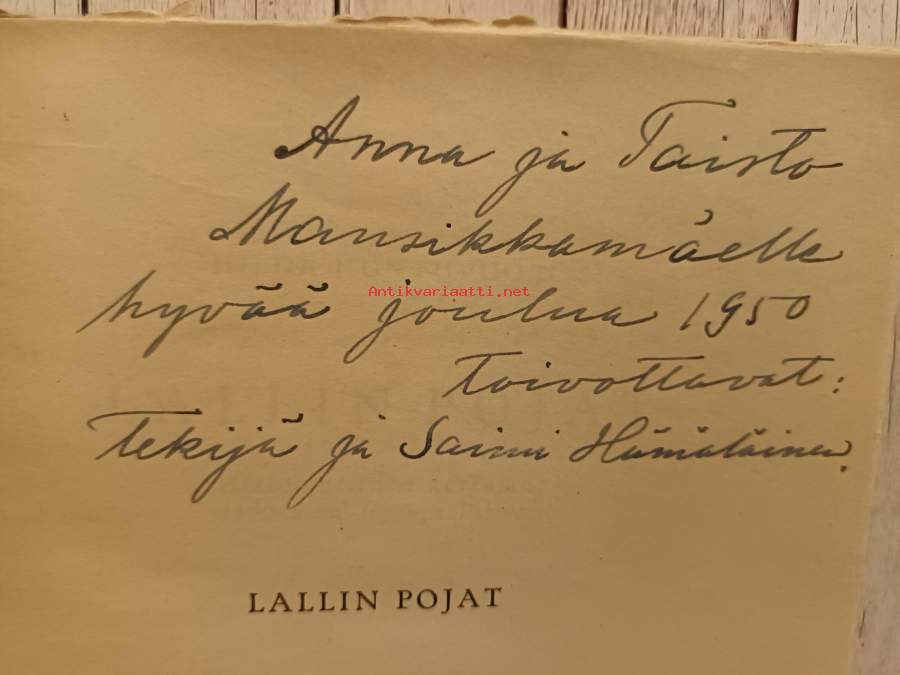 Anna ja Taisto
Mansikkamäelle
Antikvariaatti.net
hyvää joulua 1950
toivottavat:
Tekijä ja Saimi Hämäläinen.
LALLIN POJAT